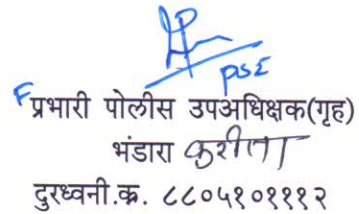 PSI
F प्रभारी पोलीस उपअधिक्षक(गृह)
भंडारा करीता
दुरध्वनी.क्र. ८८०५१०१११२